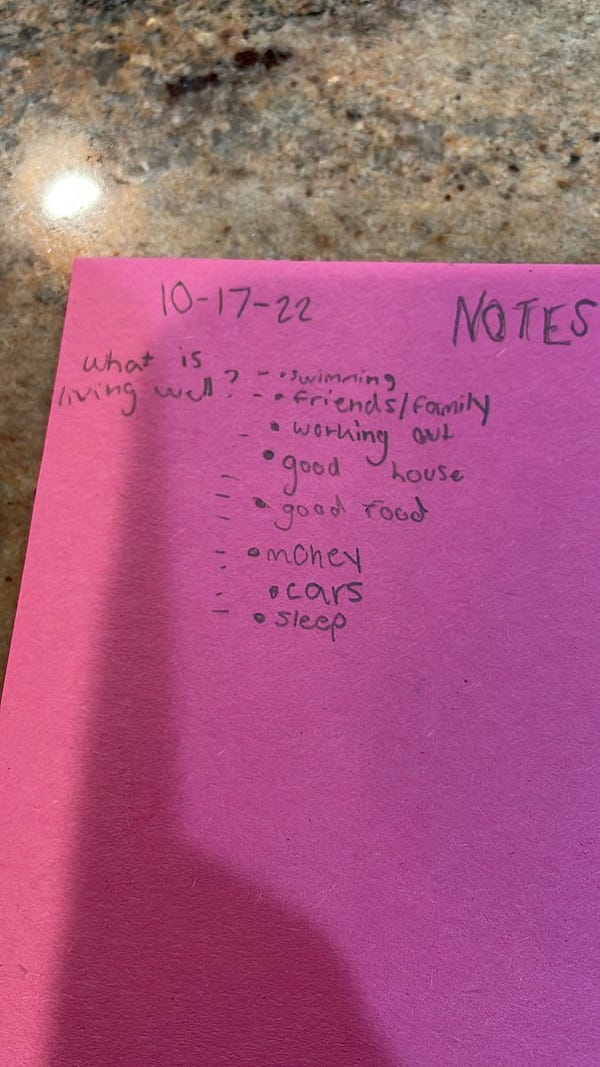 10-17-22
NOTES
What is
living well?
- • swimming
- • friends/family
- • working out
• good house
• good food
- • money
• cars
- • sleep